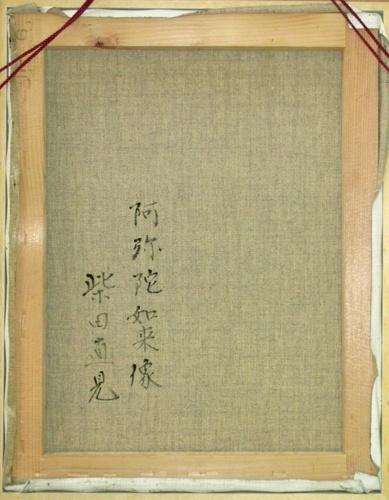 阿弥陀如来像
柴田直見